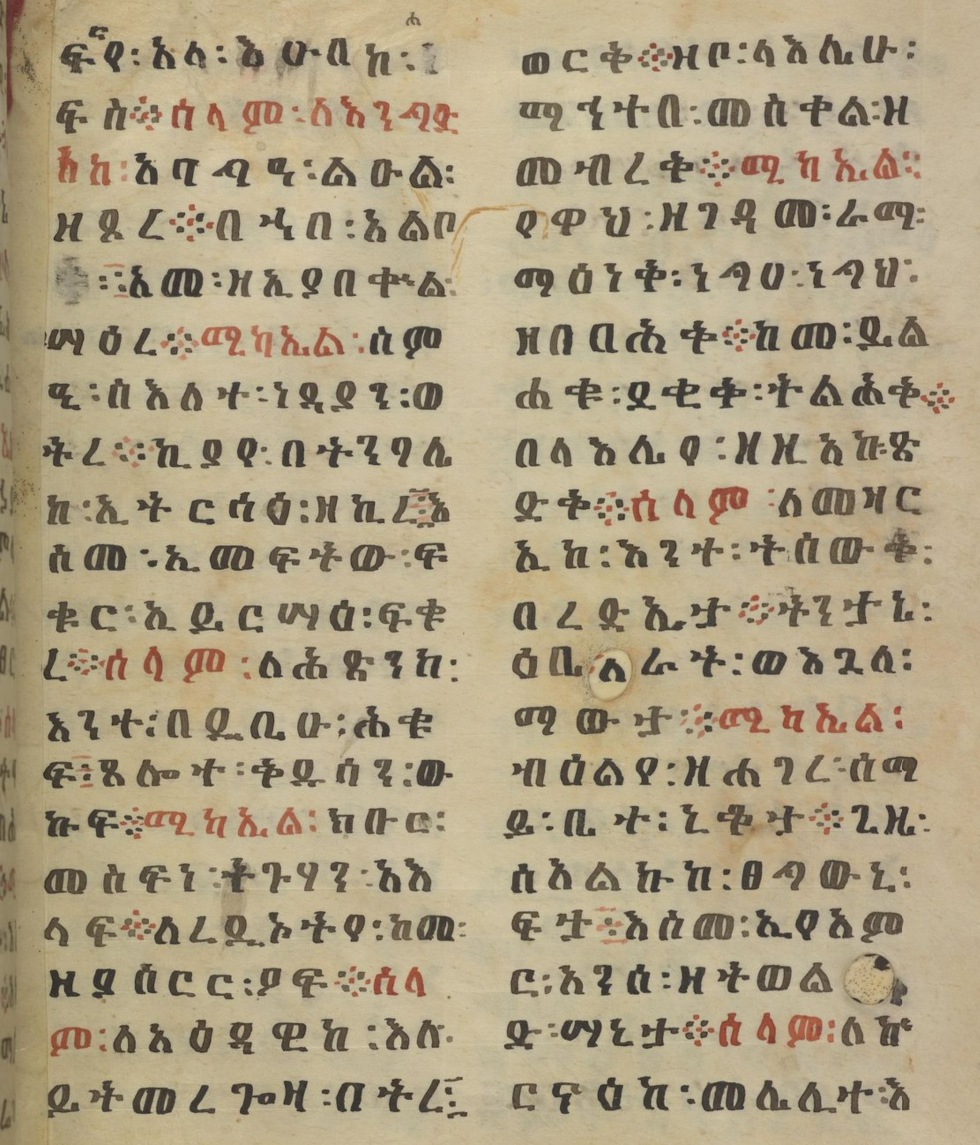 ፍርየ፡እለ፡እሁበከ፡
ፍስ፨ሰላም፡ለእንግድ
ዓከ፡አባላዒ፡ልዑል፡
ዘይረ፨በኀበ፡አልቦ
፡አመ፡ዘኢያበቍል፡
ሣዕረ፨ሚካኤል፡ሰም
ዒ፡ሰእለተ፡ነዳያን፡ወ
ትረ፨ኪያየ፡በትንባሌ
ከ፡ኢትርሳዕ፡ዘኪረ፡እ
ስመ፡ኢመፍትው፡ፍ
ቁር፡ኢይርሣዕ፡ፍቁ
ረ፨ሰላም፡ለሕፅንከ፡
እንተ፡በይቤሁ፡ሕቁ
ፍ፡ጸሎተ፡ቅዱሳን፡ው
ኩፍ፨ሚካኤል፡ክቡር፡
መስፍነ፡ትጉሃን፡አእ
ላፍ፨ለረድኦትየ፡ከመ፡
ዝይሰርር፡ያፍ፨ሰላ
ም፡ለአዕዳዊከ፡እለ፡
ይትመረጐዛ፡በትረ፡
ወርቅ፨ዝቦ፡ላእሌሁ፡
ማኅተበ፡መስቀል፡ዘ
መብረቅ፨ሚካኤል፡
የዋህ፡ዘገዳመ፡ራማ፡
ማዕነቅ፡ነግሀ፡ነግህ፡
ዘበበሕቅ፨ከመ፡ይል
ሐቁ፡ደቂቅ፡ትልሕቅ፨
በላእሌየ፡ዘዚአኩ፡ጽ
ድቅ፨ሰላም፡ለመዝር
ኢከ፡እንተ፡ትሰውቅ፡
በረድኤታ፨ትንታኔ፡
ዕቤአራት፡ወእጓለ፡
ማውታ፨ሚካኤል፡
ብዕልየ፡ዘሐገረ፡ሰማ
ይ፡ቤተ፡ኒቅታ፨ጊዜ፡
ሰእልኩከ፡ፀግውኒ፡
ፍታ፡እስመ፡ኢየአም
ር፡እንሰ፡ዘትወል
ድ፡ማኒታ፨ሰላም፡ለኵ
ርናዕከ፡መሌሊተ፡እ